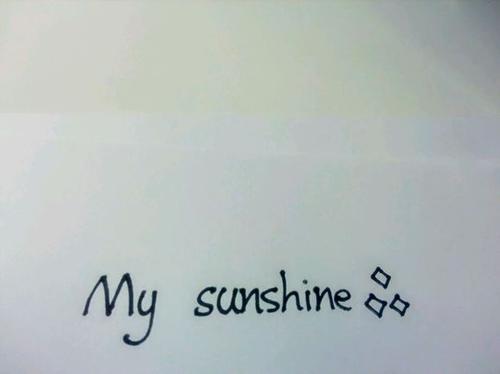 My sunshine